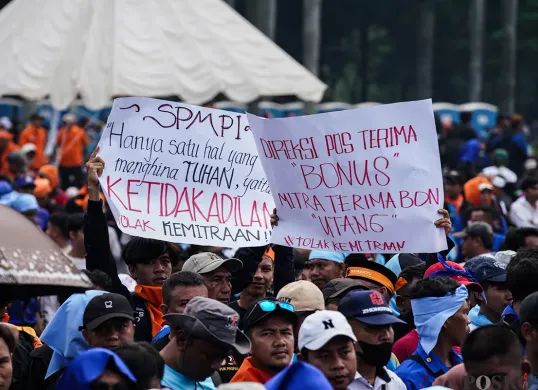 ~ SPMPI:
"Hanya satu hal yang
menghina TUHAN, yaitu
KETIDAKADILAN
TOLAK KEMITRAAN!!
DIREKSI POS TERIMA
"BONUS"
MITRA TERIMA BON
"UTANG"
#TOLAK KEMITRAAN
NY